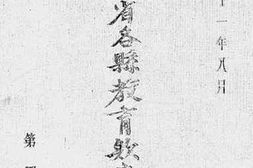 十一年八月
省各縣教育款
第